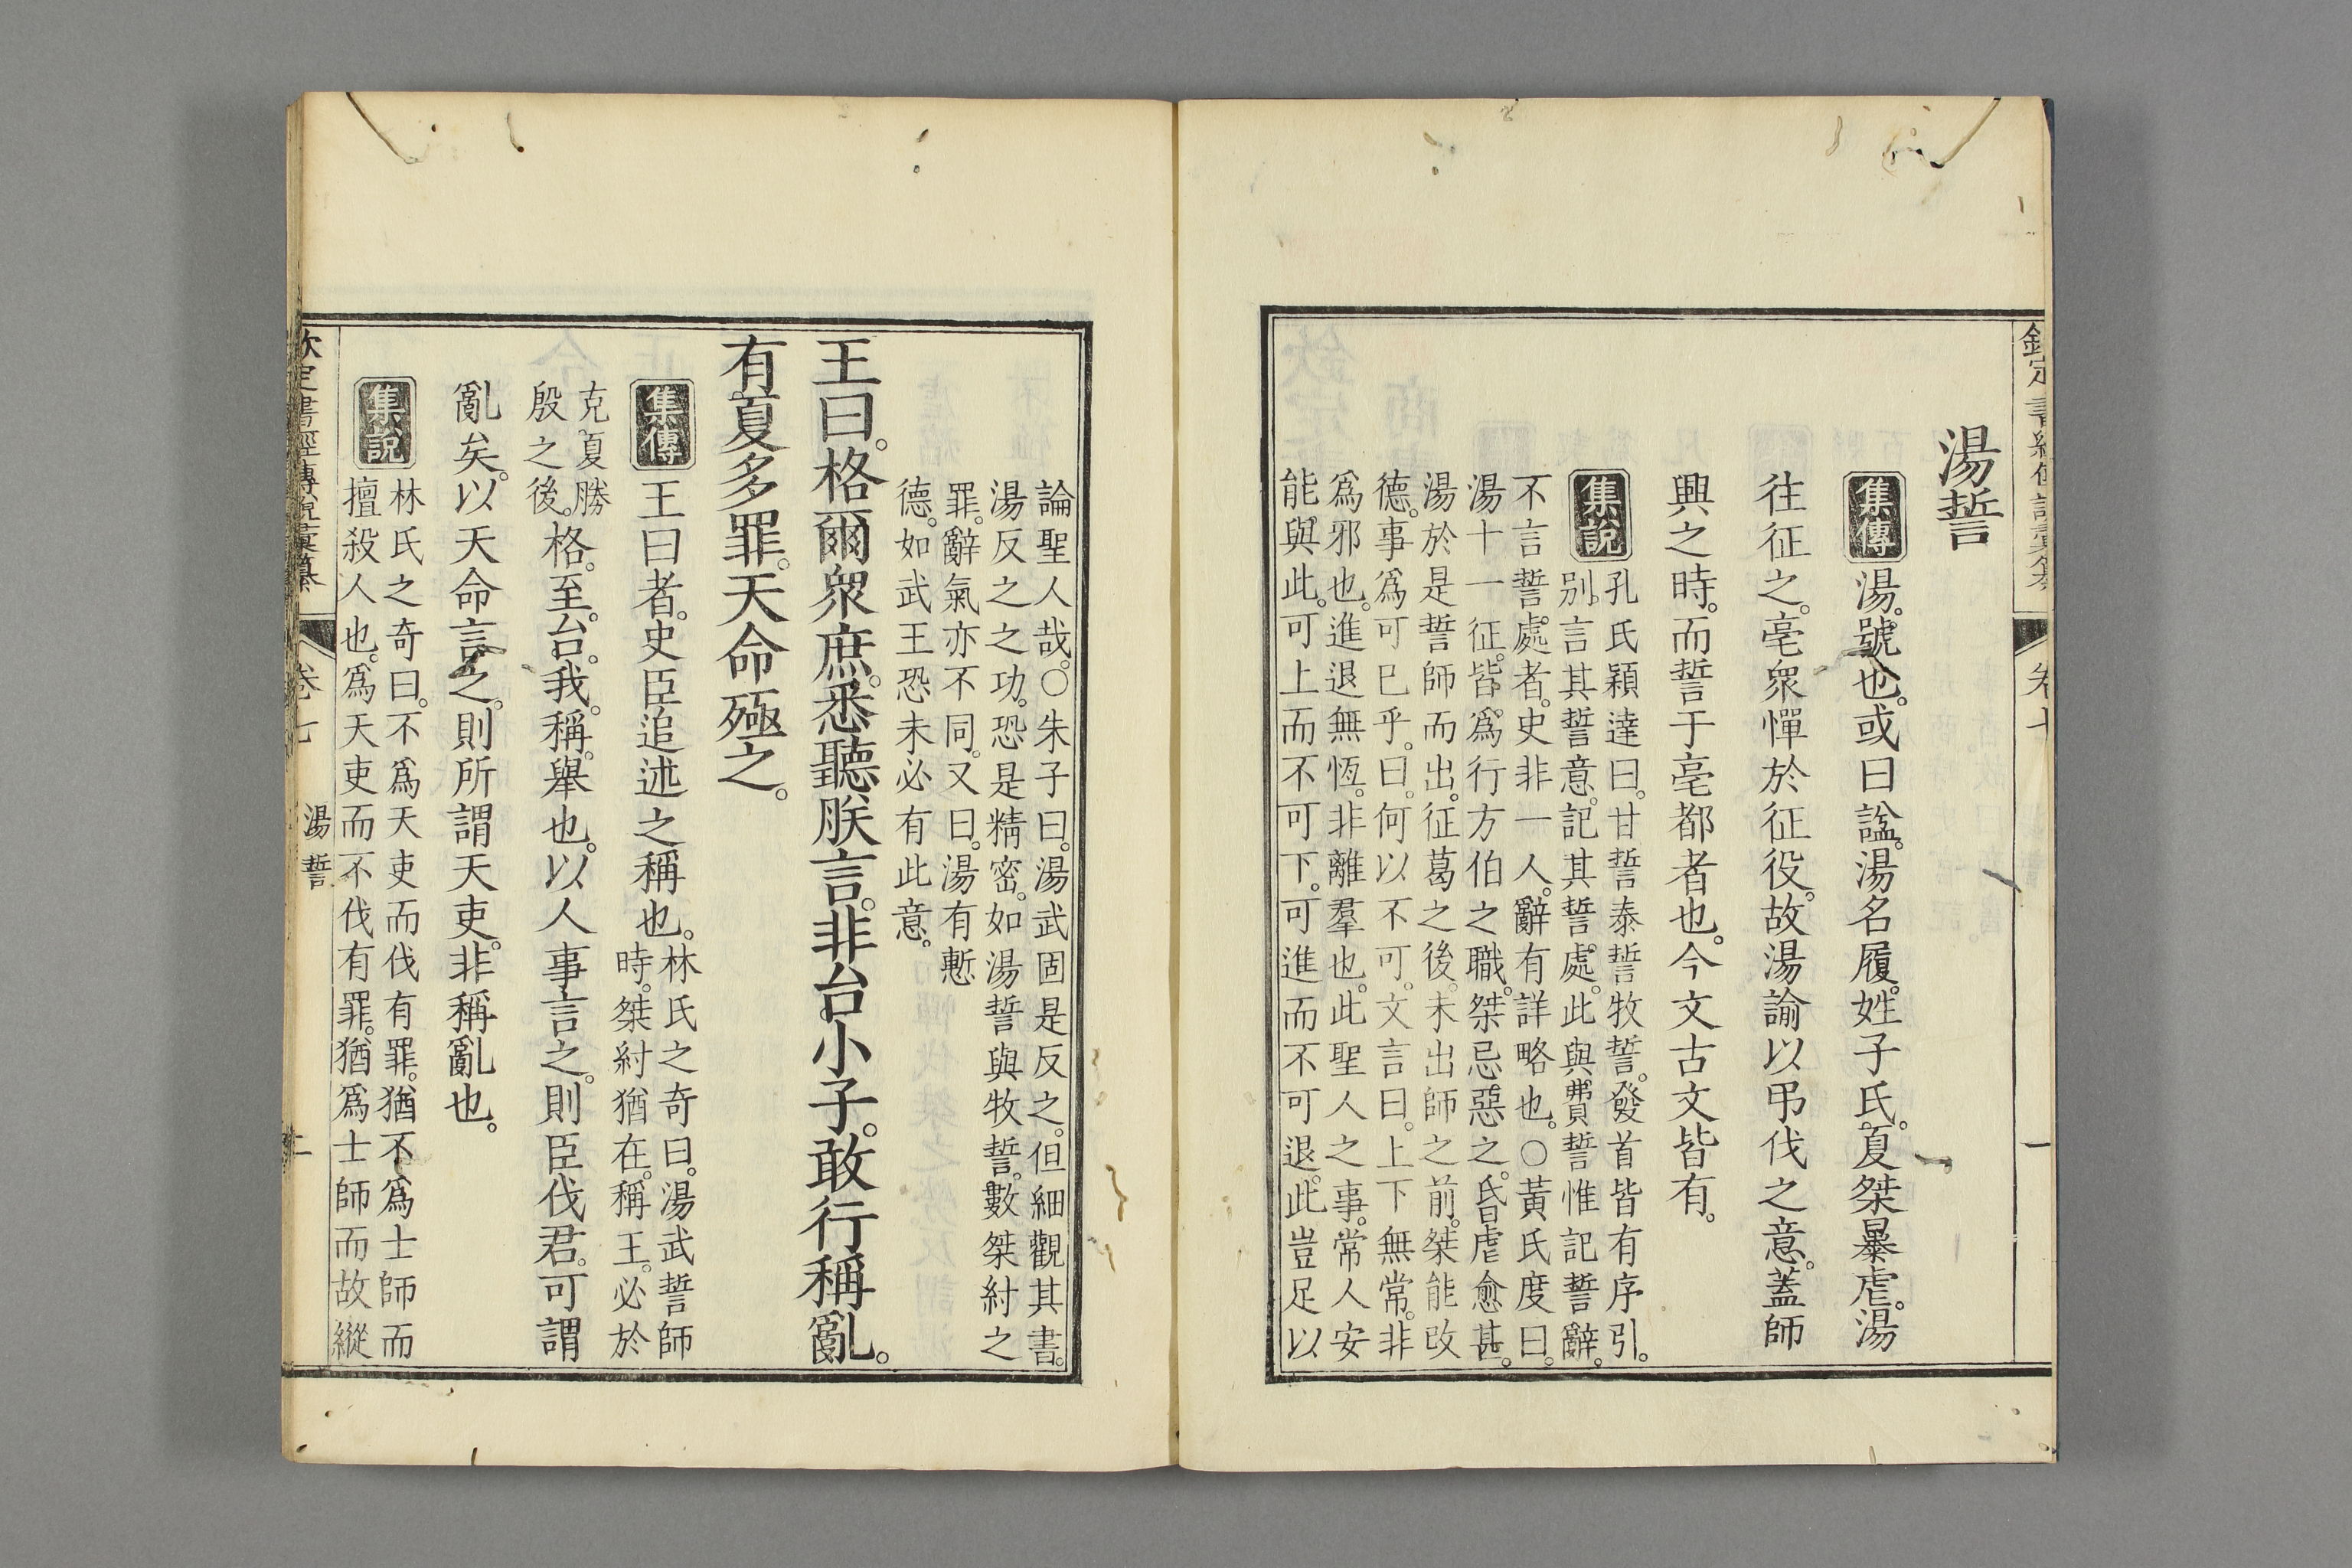 湯誓
集傳
湯。號也。或曰諡。湯名履。姓子氏。夏桀暴虐。湯
往征之。亳衆憚於征役。故湯諭以弔伐之意。蓋師
興之時。而誓于亳都者也。今文古文皆有。
集說
孔氏穎達曰。甘誓泰誓牧誓。發首皆有序引。
別言其誓意。記其誓處。此與費誓惟記誓辭。
不言誓處者。史非一人。辭有詳略也。○黃氏度曰。
湯十一征。皆爲行方伯之職。桀忌惡之。昏虐愈甚。
湯於是誓師而出。征葛之後。未出師之前。桀能改
德。事爲可已乎。曰。何以不可。文言曰。上下無常。非
爲邪也。進退無恆。非離羣也。此聖人之事。常人安
能與此。可上而不可下。可進而不可退。此豈足以
論聖人哉。○朱子曰。湯武固是反之。但細觀其書。
湯反之之功。恐是精密。如湯誓與牧誓。數桀紂之
罪。辭氣亦不同。又曰。湯有慙
德。如武王恐未必有此意。
王曰。格爾衆庶。悉聽朕言。非台小子。敢行稱亂。
有夏多罪。天命殛之。
集傳
王曰者。史臣追述之稱也。
林氏之奇曰。湯武誓師
時。桀紂猶在。稱王。必於
克夏勝
殷之後。
格。至。台。我。稱。舉也。以人事言之。則臣伐君。可謂
亂矣。以天命言之。則所謂天吏。非稱亂也。
集說
林氏之奇曰。不爲天吏而伐有罪。猶不爲士師而
擅殺人也。爲天吏而不伐有罪。猶爲士師而故縱
欽定書經傳說彙纂
卷七
湯誓
二